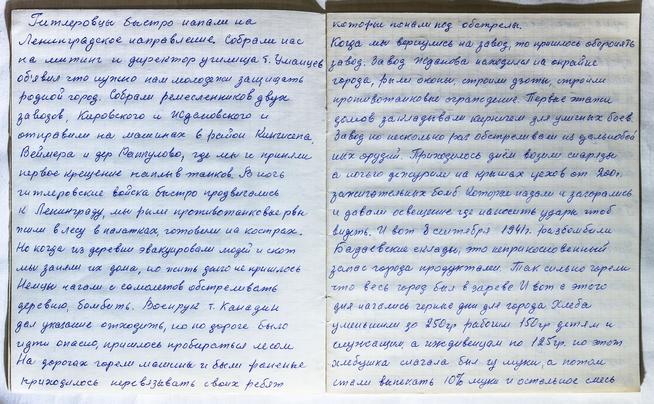 Гитлеровцы быстро напали на
Ленинградское направление. Собрали нас
на митинг и директор училища т. Уманцев
объявил что нужно нам молодежи защищать
родной город. Собрали ремесленников двух
заводов, Кировского и Ждановского и
отправили на машинах в район Кингисепа,
Веймера и дер Раппулово, где мы и приняли
первое крещение наплыв танков. В ночь
гитлеровские войска быстро продвигались
к Ленинграду, мы рыли противотанковые рвы
жили в лесу в палатках, готовили на кострах.
Но когда из деревни эвакуировали людей и скот
мы заняли их дома, но жить долго не пришлось
Немцы начали с самолетов обстреливать
деревню, бомбить. Военрук т. Канадин
дал указание отходить, но по дороге было
идти опасно, пришлось пробираться лесом
На дорогах горели машины и были раненые
приходилось перевязывать своих ребят
которые попали под обстрелы.
Когда мы вернулись на завод, то пришлось оборонять
завод. Завод Жданова находился на окраине
города, рыли окопы, строили дзоты, строили
противотанковые ограждение. Первые этажи
домов закладывали кирпичем для уличных боев.
Завод по несколько раз обстреливали из дальнобой
ных орудий. Приходилось днём возили снаряды
а ночью дежурили на крышах цехов от
зажигательных бомб которые падали и загорались
и давали освещение где наносить удары чтоб
видеть. И вот 8 сентября 1941г. разбомбили
Бадаевские склады, это неприкосновенный
запас города продуктами. Так сильно горели
что весь город был в зареве И вот с этого
дня начались черные дни для города Хлеба
уменьшили до 250гр рабочим 150гр детям и
служащим, а иждивенцам по 125гр. но этот
хлебушка сначала был из муки, а потом
стали выпекать 10% муки и остальное смесь